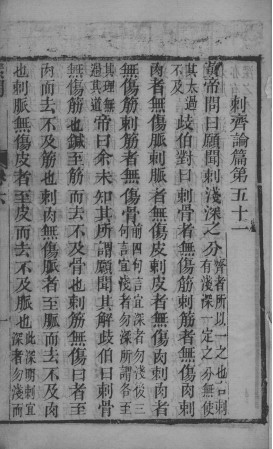 刺齊論篇第五十一
黃帝問曰願聞刺淺深之分齊者所以一之也言刺有淺深一定之分無使
其太過不及歧伯對曰刺骨者無傷筋刺筋者無傷肉刺
肉者無傷脈刺脈者無傷皮刺皮者無傷肉刺肉者
無傷筋刺筋者無傷骨前四句言宜深者勿淺後三句言宜淺者勿深所謂各至
其理無過其道帝曰余未知其所謂願聞其解歧伯曰刺骨
無傷筋也鍼至筋而去不及骨也刺筋無傷肉者至
肉而去不及筋也刺肉無傷脈者至脈而去不及肉
也刺脈無傷皮者至皮而去不及脈也此深明刺宜深者勿淺而